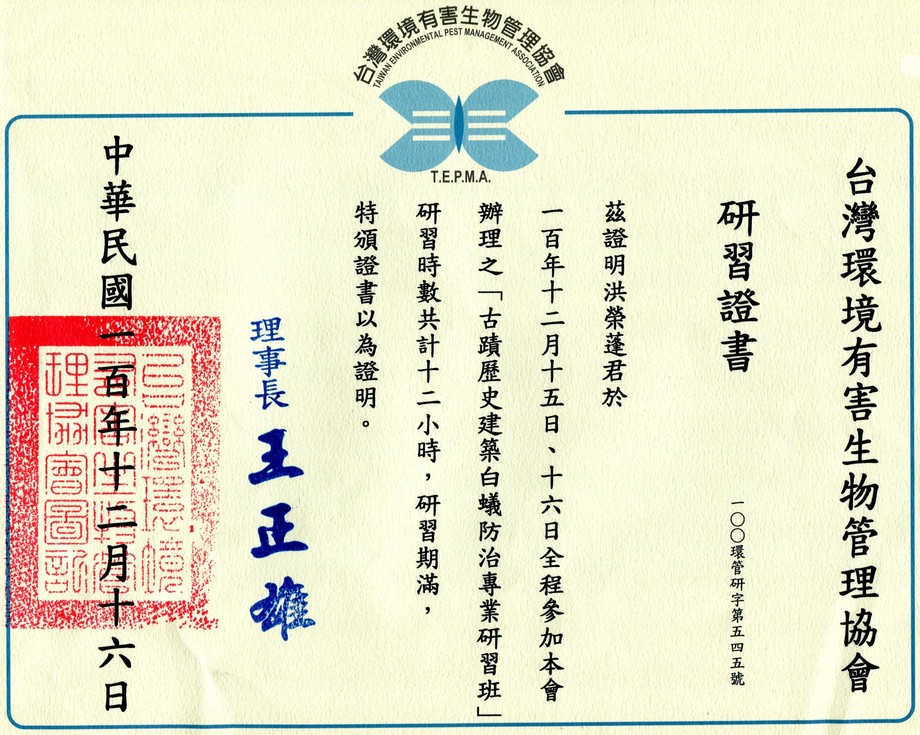 台灣環境有害生物管理協會
TAIWAN ENVIRONMENTAL PEST MANAGEMENT ASSOCIATION
T.E.P.M.A.
台灣環境有害生物管理協會
研習證書
一〇〇環管研字第五四五號
茲證明洪榮蓬君於
一百年十二月十五日、十六日全程參加本會
辦理之「古蹟歷史建築白蟻防治專業研習班」
研習時數共計十二小時，研習期滿，
特頒證書以為證明。
理事長 王正雄
中華民國一百年十二月十六日
台灣環境有害生物管理協會圖記